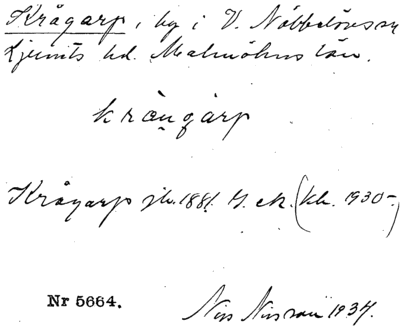 Krågarp, by i V. Nöbbelövs sn
Ljunits hd. Malmöhus län.
kràn̥gàrp
Krågarp jb. 1881. G. ek. (kh. 1930-)
Nr 5664.
Nils Nilsson 1934.